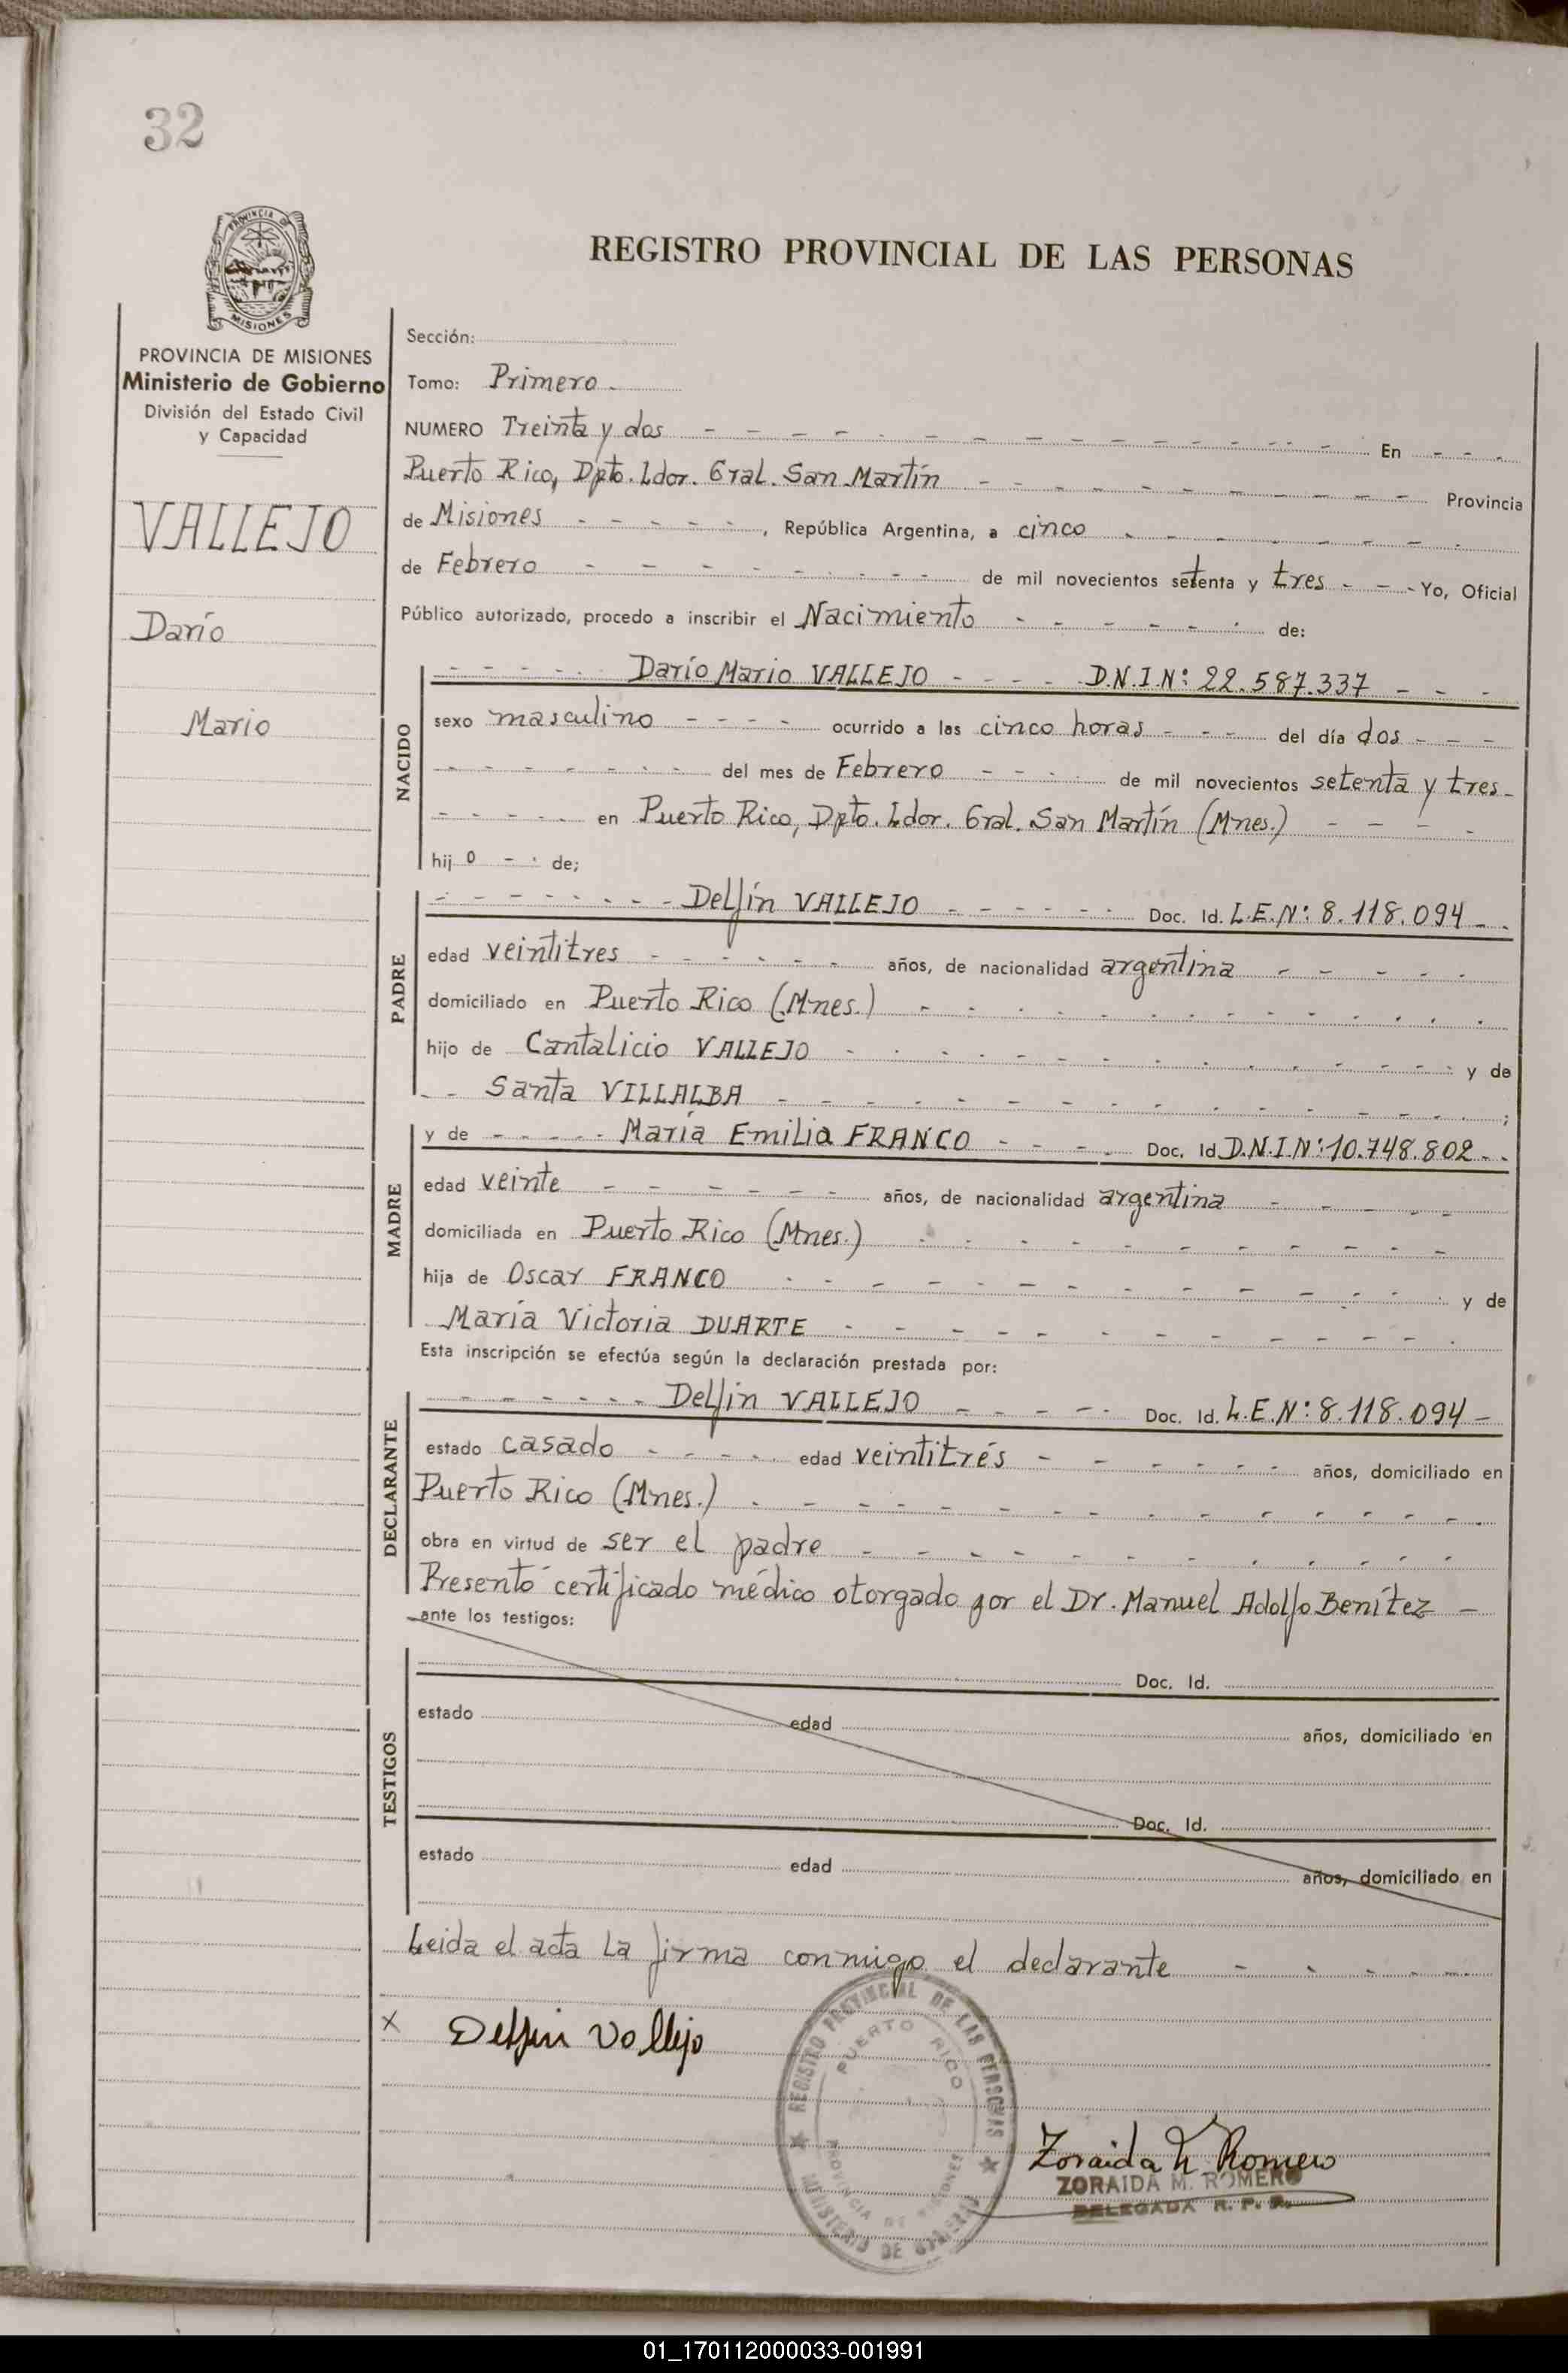 32
PROVINCIA DE MISIONES
REGISTRO PROVINCIAL DE LAS PERSONAS
PROVINCIA DE MISIONES
Ministerio de Gobierno
División del Estado Civil
y Capacidad
VALLEJO
Darío
Mario
Sección:
Tomo: Primero.
NUMERO Treinta y dos - - - - - - - - - - - - - En - - -
Puerto Rico, Dpto. Ldor. Gral. San Martín - - - - - - - - - - Provincia
de Misiones - - - - -, República Argentina, a cinco - - - - - - - -
de Febrero - - - - - - - - - de mil novecientos setenta y tres - - - Yo, Oficial
Público autorizado, procedo a inscribir el Nacimiento - - - - - - de:
NACIDO
- - - - - Darío Mario VALLEJO - - - - D.N.I.N: 22.587.337 - - -
sexo masculino - - - - ocurrido a las cinco horas - - - del día dos - - -
- - - - - - - - del mes de Febrero - - - - de mil novecientos setenta y tres-
- - - - - en Puerto Rico, Dpto. Ldor. Gral. San Martín (Mnes.) - - - -
hijo - - de;
PADRE
- - - - - - - Delfín VALLEJO - - - - - - Doc. Id. L.E.N: 8.118.094 - -
edad veintitres - - - - - - años, de nacionalidad argentina - - - - -
domiciliado en Puerto Rico (Mnes.) - - - - - - - - - - - - -
hijo de Cantalicio VALLEJO - - - - - - - - - - - - - y de
- - Santa VILLALBA - - - - - - - - - - - - - - ;
MADRE
y de - - - - - María Emilia FRANCO - - - - Doc. Id D.N.I.N:10.748.802 - -
edad veinte - - - - - - años, de nacionalidad argentina - - - -
domiciliada en Puerto Rico (Mnes.) - - - - - - - - - - -
hija de Oscar FRANCO - - - - - - - - - - - - y de
María Victoria DUARTE - - - - - - - - - - - -
Esta inscripción se efectúa según la declaración prestada por:
DECLARANTE
- - - - - - Delfin VALLEJO - - - - - Doc. Id. L.E.N: 8.118.094 -
estado casado - - - - - edad veintitrés - - - - - - años, domiciliado en
Puerto Rico (Mnes.) - - - - - - - - - - - - - -
obra en virtud de ser el padre - - - - - - - - - - -
Presentó certificado médico otorgado por el Dr. Manuel Adolfo Benítez -
ante los testigos:
TESTIGOS
Doc. Id.
estado edad años, domiciliado en
Doc. Id.
estado edad años, domiciliado en
Leida el acta la firma conmigo el declarante - - - - -
x Delfin Vallejo
REGISTRO PROVINCIAL DE LAS PERSONAS
PUERTO RICO
PROVINCIA DE MISIONES
MINISTERIO DE GOBIERNO
Zoraida M. Romero
ZORAIDA M. ROMERO
DELEGADA R. P. P.
01_170112000033-001991